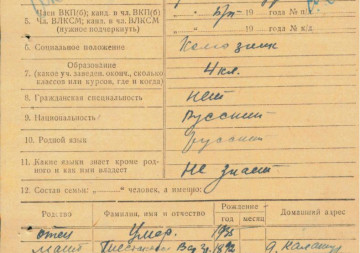 Член ВКП(б); канд. в ВКП(б)
5. Ч. ВЛКСМ; канд. в ча. ВЛКСМ
(нужное подчеркнуть)
б/п — 19 года № п/б.
19 года № к/д.
6. Социальное положение
7. Образование
(какое уч. заведен. оконч., сколько
классов или курсов, где и когда)
4 кл.
8. Гражданская специальность
нет
9. Национальность
Русский
10. Родной язык
Русский
11. Какие языки знает кроме род-
ного и как ими владеет
Не знает
12. Состав семьи: „ “ человек, а именно:
Родство Фамилия, имя и отчество Рождение год месяц Домашний адрес
отец умер. 19
мать 18 д.